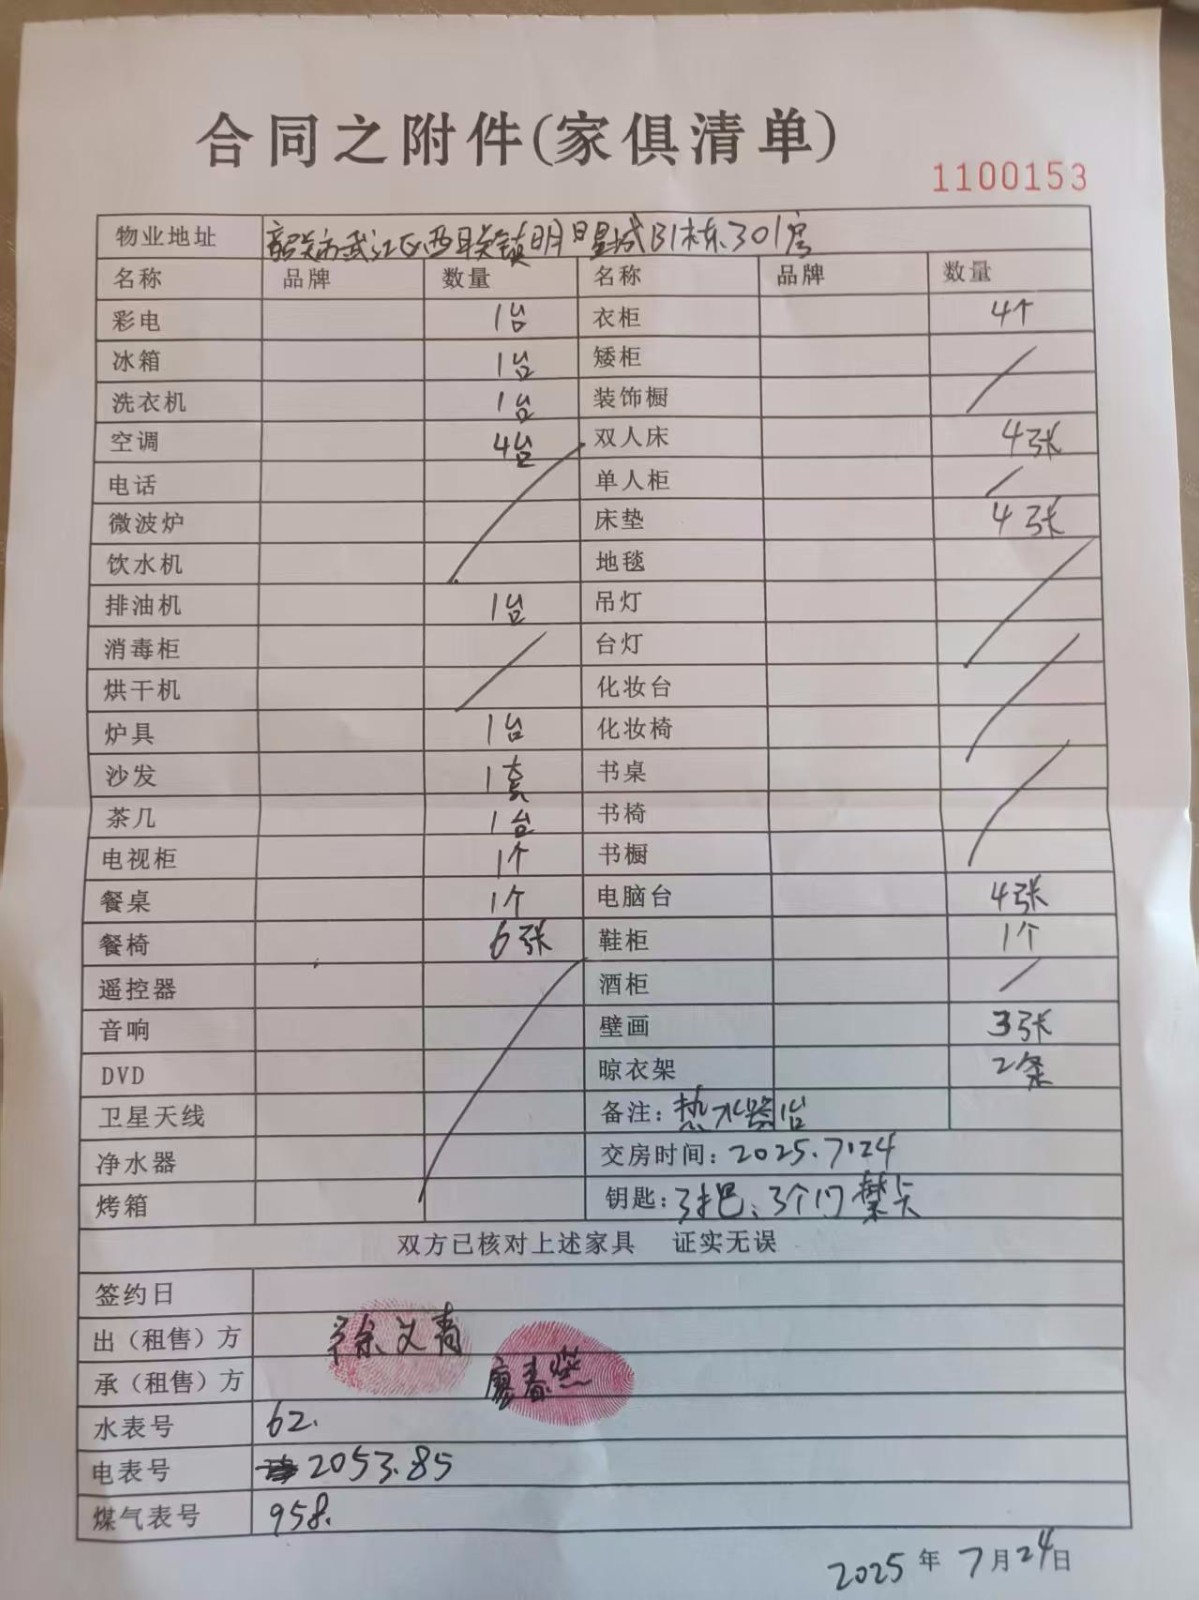 合同之附件(家俱清单)
1100153
物业地址 韶关市武江区西联镇明日星城B1栋301房
名称 品牌 数量 名称 品牌 数量
彩电 1台 衣柜 4个
冰箱 1台 矮柜
洗衣机 1台 装饰橱
空调 4台 双人床 4张
电话 单人柜
微波炉 床垫 4张
饮水机 地毯
排油机 1台 吊灯
消毒柜 台灯
烘干机 化妆台
炉具 1台 化妆椅
沙发 1套 书桌
茶几 1台 书椅
电视柜 1个 书橱
餐桌 1个 电脑台 4张
餐椅 6张 鞋柜 1个
遥控器 酒柜
音响 壁画 3张
DVD 晾衣架 2条
卫星天线 备注：热水器1台
净水器 交房时间：2025.7.24
烤箱 钥匙：3把、3个门禁卡
双方已核对上述家具 证实无误
签约日
出（租售）方 徐文青
承（租售）方 廖春
水表号 62.
电表号 2053.85
煤气表号 958.
2025年7月24日